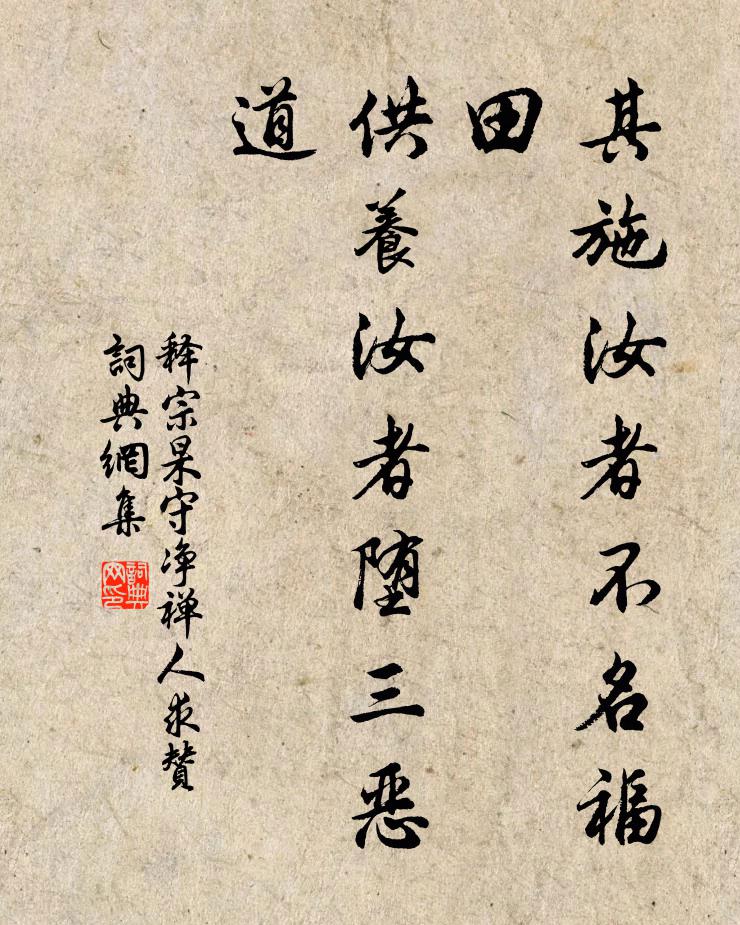 其施汝者不名福
田
供養汝者堕三恶
道
释宗杲守净禅人求赞
詞典網集
詞典网印